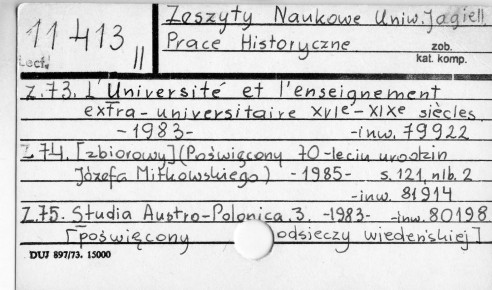 Zeszyty Naukowe Uniw. Jagiell.
11413 II
Prace Historyczne
zob.
kat. komp.
Z.73. L'Université et l'enseignement
extra-universitaire XVIe-XIXe siècles
-1983- -inw. 79922
Z.74. [zbiorowy] (Poświęcony 70-leciu urodzin
Józefa Mitkowskiego) -1985- s. 121, nlb. 2
-inw. 81914
Z.75. Studia Austro-Polonica. 3. -1983- -inw. 80198
[poświęcony odsieczy wiedeńskiej]
DUJ 897/73. 15000